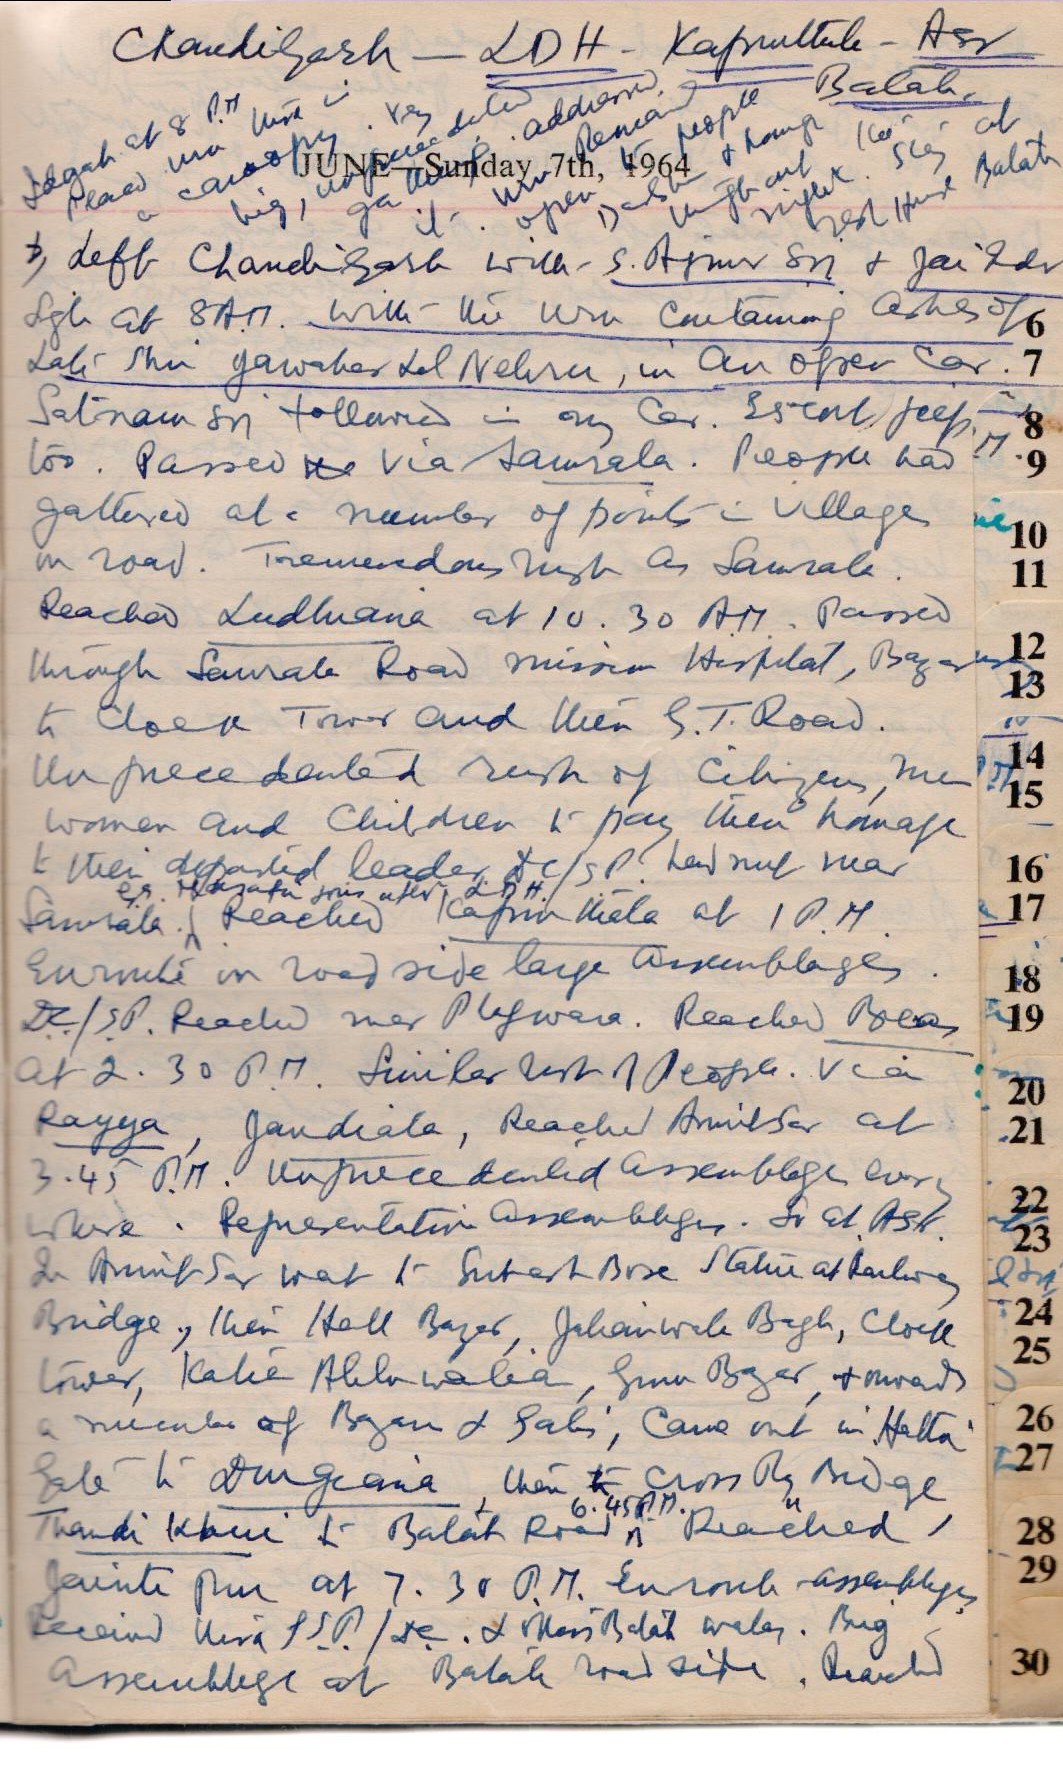 Chandigarh — LDH - Kapurthala - Asr
Batala.
JUNE—Sunday, 7th, 1964
Left Chandigarh with S. Ajmer Sn & Jai Indr
Sgh at 8 A.M. with the urn containing ashes of
Late Shri Jawahar Lal Nehru, in an open Car.
Satnam Sn followed in my Car. Escort jeep
too. Passed via Samrala. People had
gathered at a number of points in village
on road. Tremendous rush as Samrala.
Reached Ludhiana at 10.30 A.M. Passed
through Samrala Road mission Hospital, Bazar
to Clock Tower and then G.T. Road.
Unprecedented rush of Citizens, men
women and Children to pay their homage
to their departed leader. DC/SP. had met near
Samrala. Reached Kapurthala at 1 P.M.
Enroute on road side large assemblages.
DC/SP. Reached near Phgwara. Reached Beas
at 2.30 P.M. Similar rush of People. Via
Rayya, Jandiala, Reached Amritsar at
3.45 P.M. Unprecedented assemblage every
where. Representative assemblages. So at Asr.
In Amritsar went to Subash Bose Statue at Railway
Bridge, then Hall Bazar, Jalianwala Bagh, Clock
tower, Katra Ahluwalia, Guru Bazar, & onwards
a number of Bazars & Galis, Came out in Hathi
Gate to Durgiana, then to Cross Rly Bridge
6.45 P.M.
Thandi Khui to Batala Road Reached
Jaintipur at 7.30 P.M. Enroute assemblages
Received there SSP/DC. & others Batala walas. Big
assemblage at Batala road side. Reached
Idgah at 8 P.M.
Placed urn there in
a canopy. Very
big, unprecedented
gathering. addressed
it. Urn Remained
open to people
Darshan & homage
throughout the
night. Stay at
Rest House Batala
6
7
8
9
10
11
12
13
14
15
16
17
18
19
20
21
22
23
24
25
26
27
28
29
30